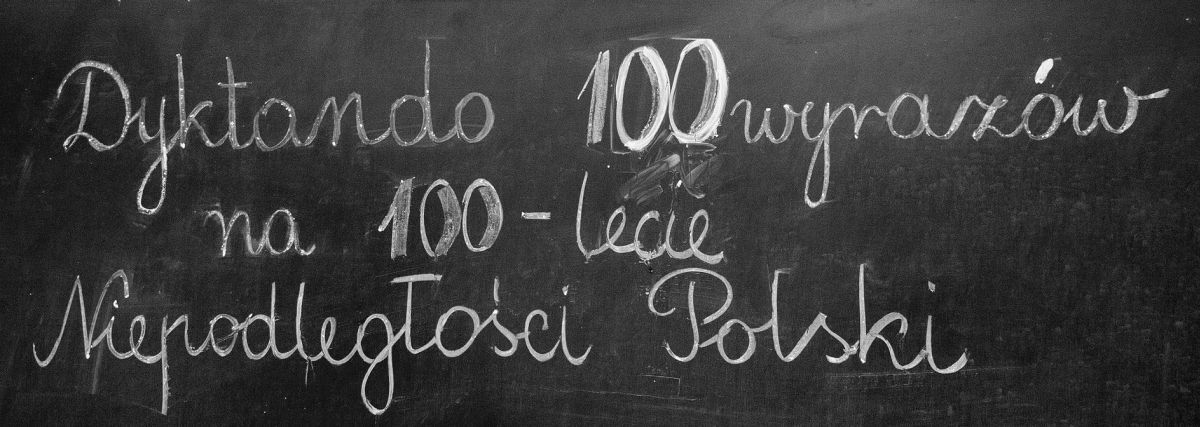 Dyktando 100 wyrazów
na 100-lecie
Niepodległości Polski